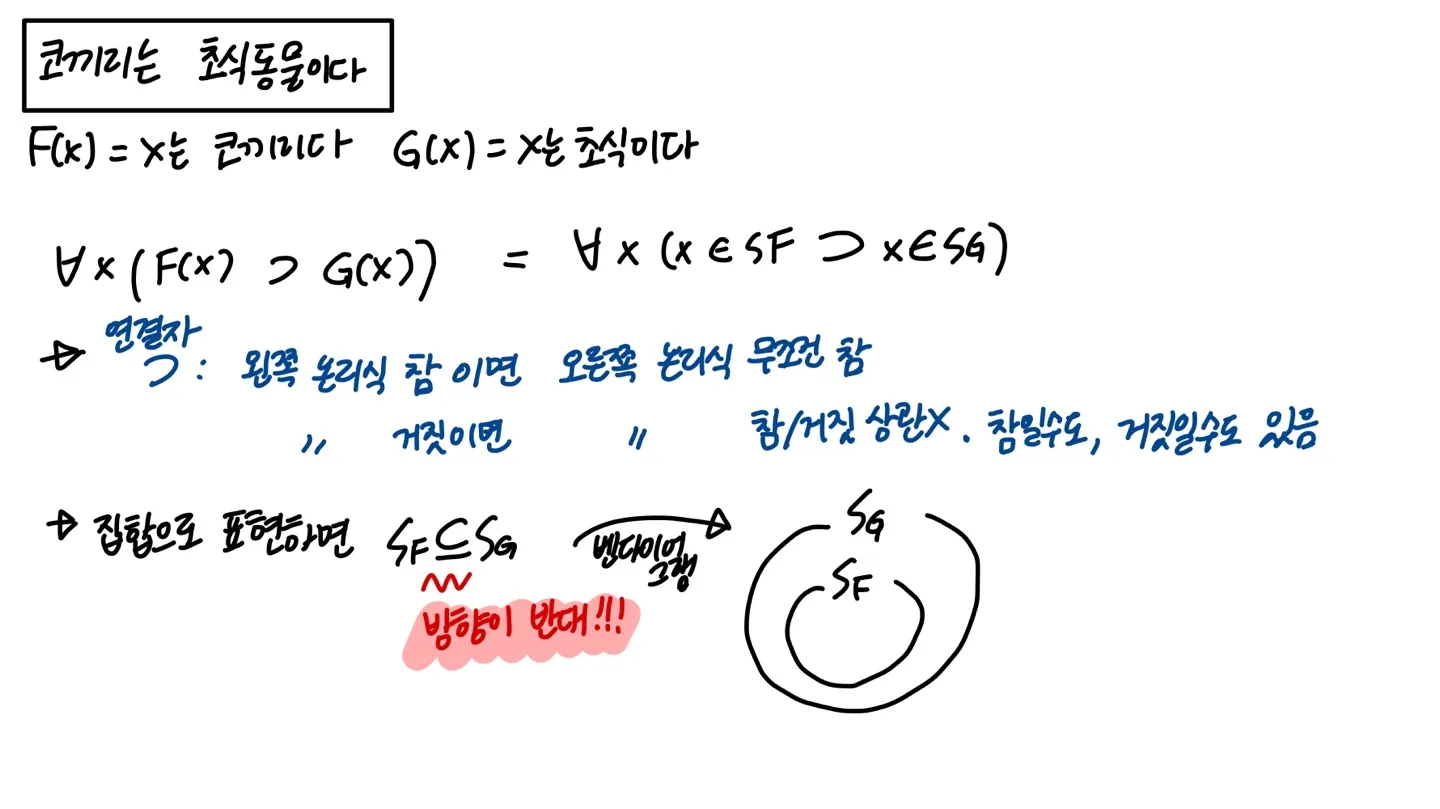 코끼리는 초식동물이다
F(x) = x는 코끼리다 G(x) = x는 초식이다
∀x (F(x) ⊃ G(x)) = ∀x (x ∈ SF ⊃ x ∈ SG)
→ 연결자
⊃ : 왼쪽 논리식 참 이면 오른쪽 논리식 무조건 참
〃 거짓이면 〃 참/거짓 상관X. 참일수도, 거짓일수도 있음
→ 집합으로 표현하면 SF ⊆ SG 벤다이어그램
방향이 반대!!!
SG
SF